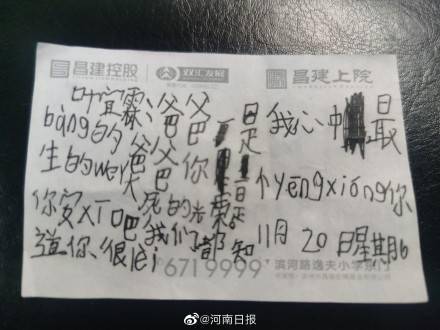 昌建控股 双汇发展 昌建上院
叶宜霖:爸爸是我心中最
bàng的爸爸你是个yēngxióng你
生的wei大死的光荣
你安xī吧我们都知
道你、很lèi
11月20日星期6
6719999 滨河路逸夫小学东门
@河南日报